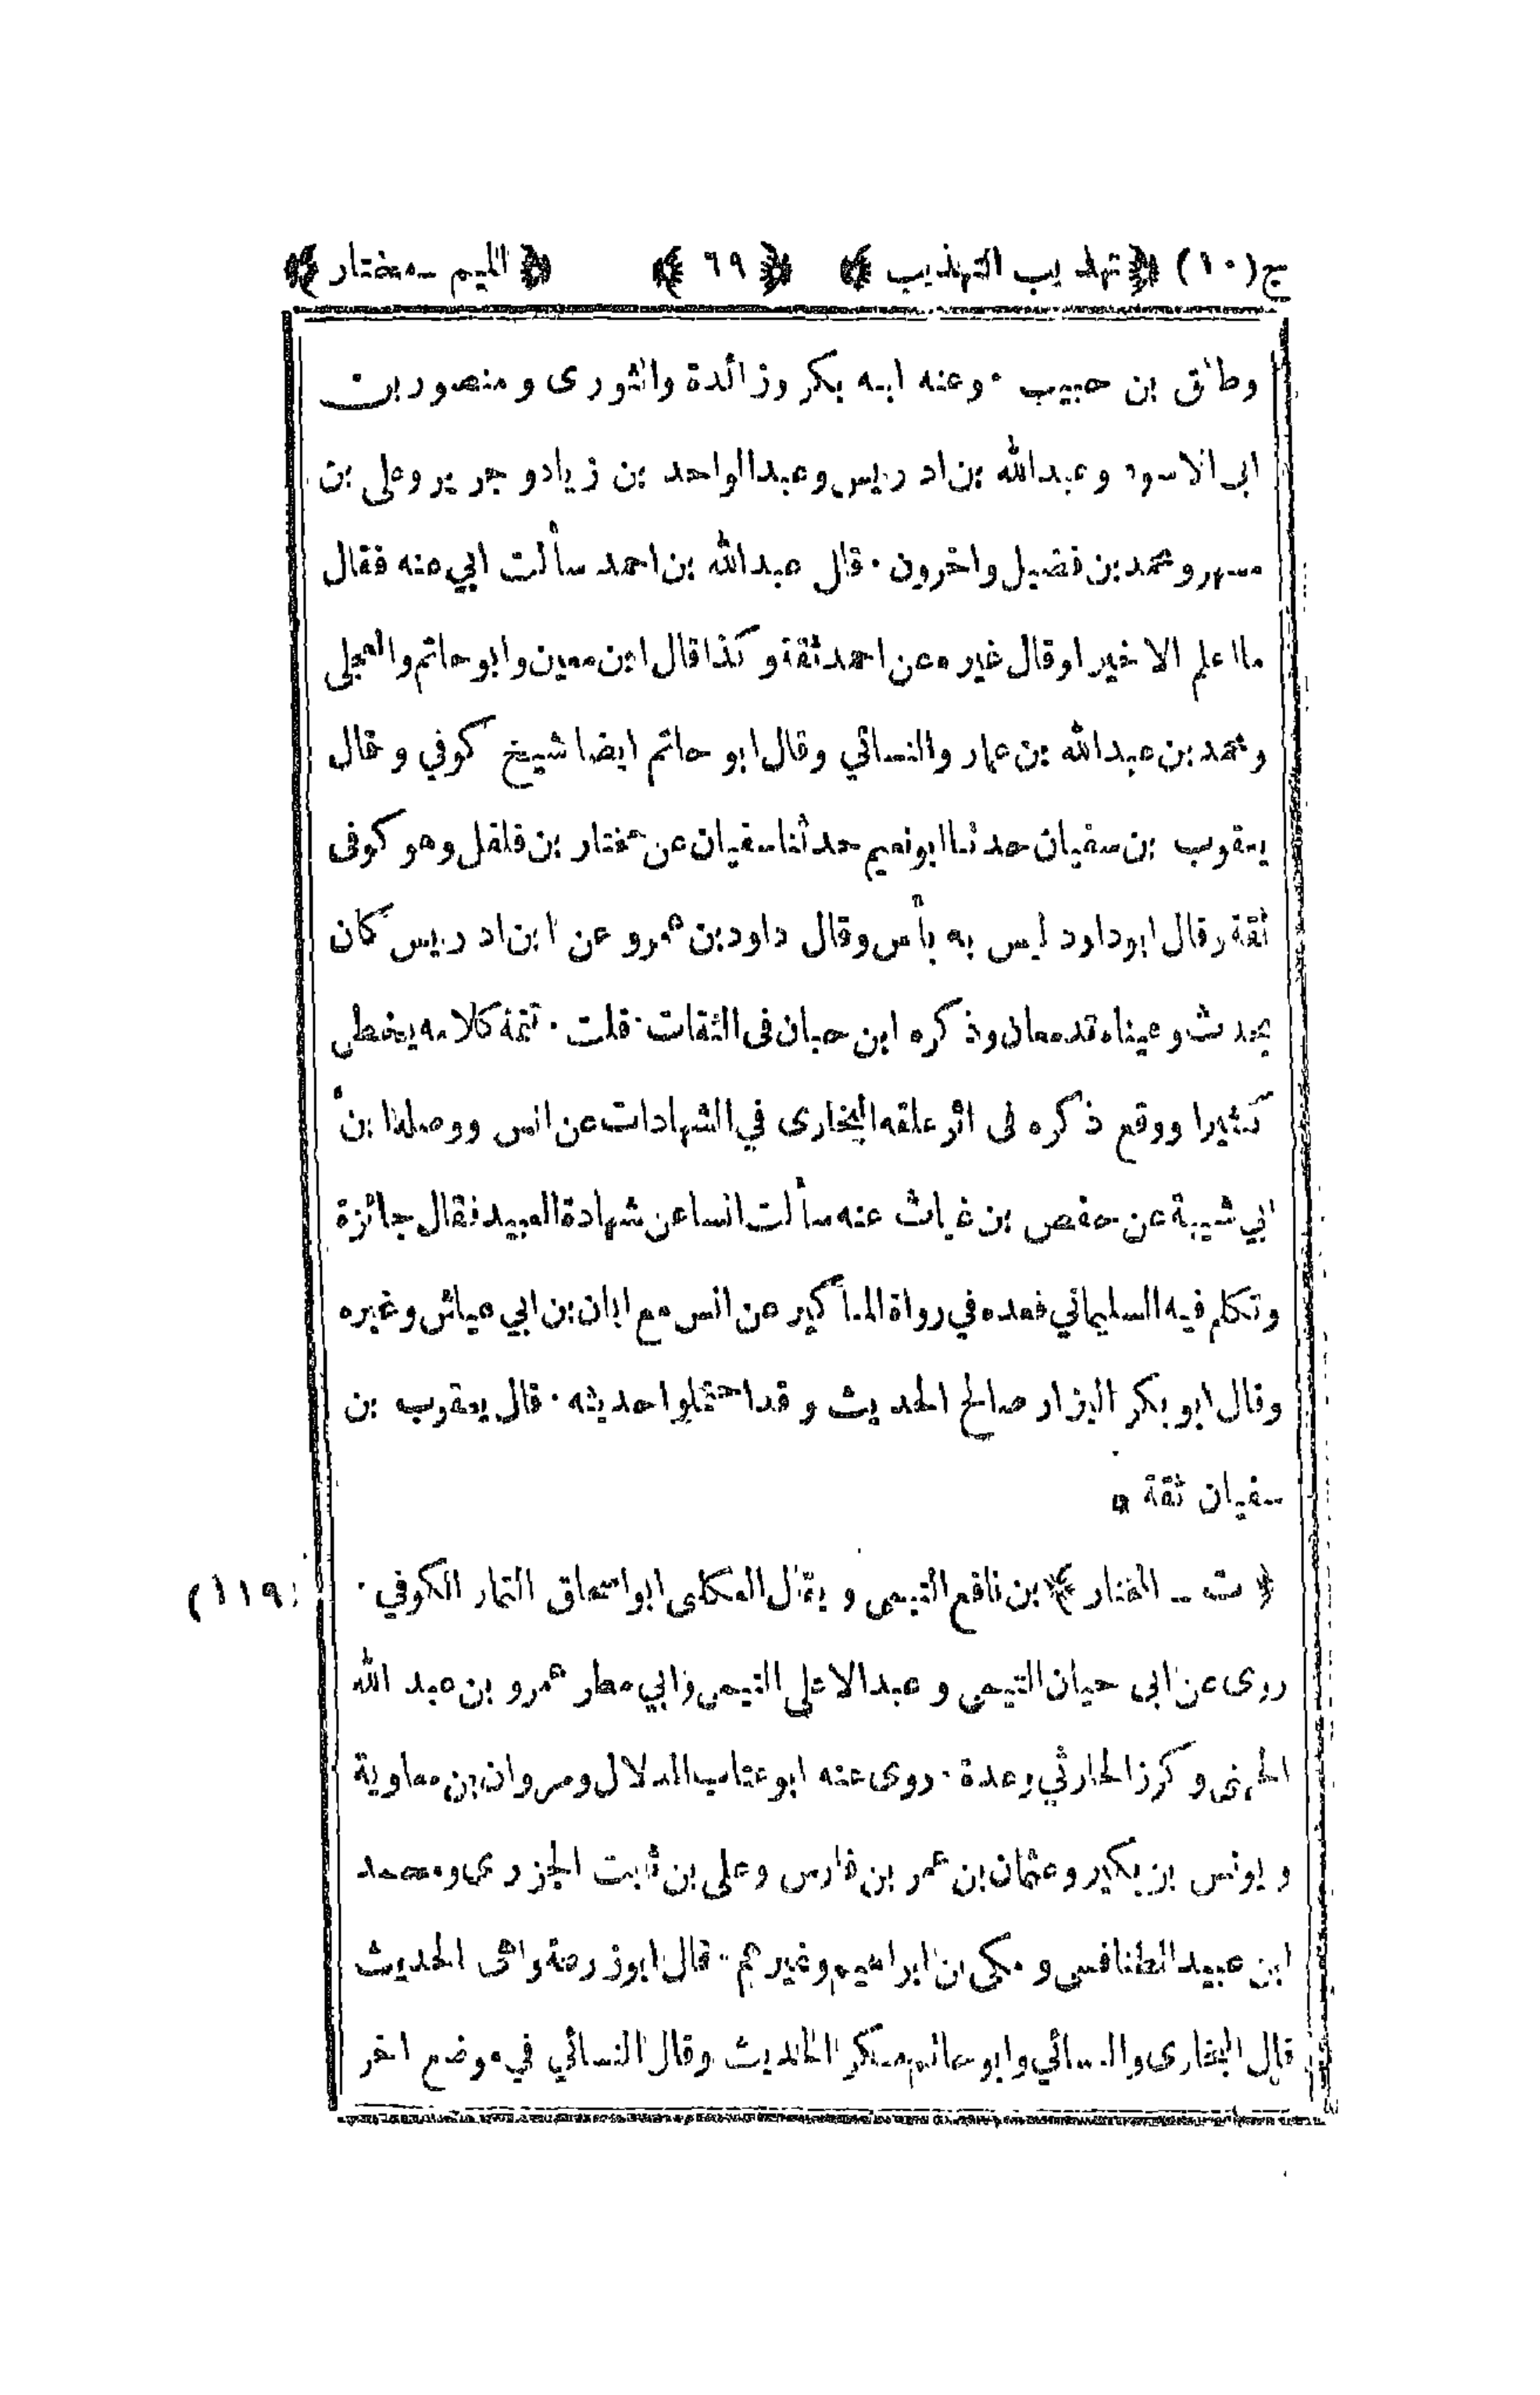 ج(١٠) ﴿تهذيب التهذيب﴾ ﴿٦٩﴾ ﴿الميم - مختار﴾
وطلق بن حبيب . وعنه ابنه بكر وزائدة والثوري ومنصور بن
ابي الاسود وعبدالله بن ادريس وعبدالواحد بن زياد وجرير وعلي بن
مسهر ومحمد بن فضيل واخرون . قال عبدالله بن احمد سألت ابي عنه فقال
ما اعلم الا خيرا وقال غيره عن احمد ثقة وكذا قال ابن معين وابو حاتم والعجلي
ومحمد بن عبدالله بن عمار والنسائي وقال ابو حاتم ايضا شيخ كوفي وقال
يعقوب بن سفيان حدثنا ابونعيم حدثنا سفيان عن مختار بن فلفل وهو كوفي
ثقة وقال ابوداود ليس به بأس وقال داود بن عمرو عن ابن ادريس كان
يحدث وعيناه تدمعان وذكره ابن حبان في الثقات . قلت . تتمة كلامه يخطئ
كثيرا ووقع ذكره في اثر علقه البخاري في الشهادات عن انس ووصله ابن
ابي شيبة عن حفص بن غياث عنه سألت انسا عن شهادة العبيد فقال جائزة
وتكلم فيه السليماني فعده في رواة المناكير عن انس مع ابان بن ابي عياش وغيره
وقال ابو بكر البزار صالح الحديث وقد احتملوا حديثه . قال يعقوب بن
سفيان ثقة
﴿ت - المختار﴾ بن نافع التيمي ويقال العكلي ابواسحاق التمار الكوفي .
(١١٩)
روى عن ابي حيان التيمي وعبدالاعلى التيمي وابي مطر عمرو بن عبد الله
الجهني وكرز الحارثي وعدة . روى عنه ابو عتاب الدلال ومروان بن معاوية
ويونس بن بكير وعثمان بن عمر بن فارس وعلي بن ثابت الجزري ومحمد
ابن عبيد الطنافسي ومكي بن ابراهيم وغيرهم . قال ابوزرعة واهي الحديث
قال البخاري والنسائي وابو حاتم منكر الحديث وقال النسائي في موضع اخر